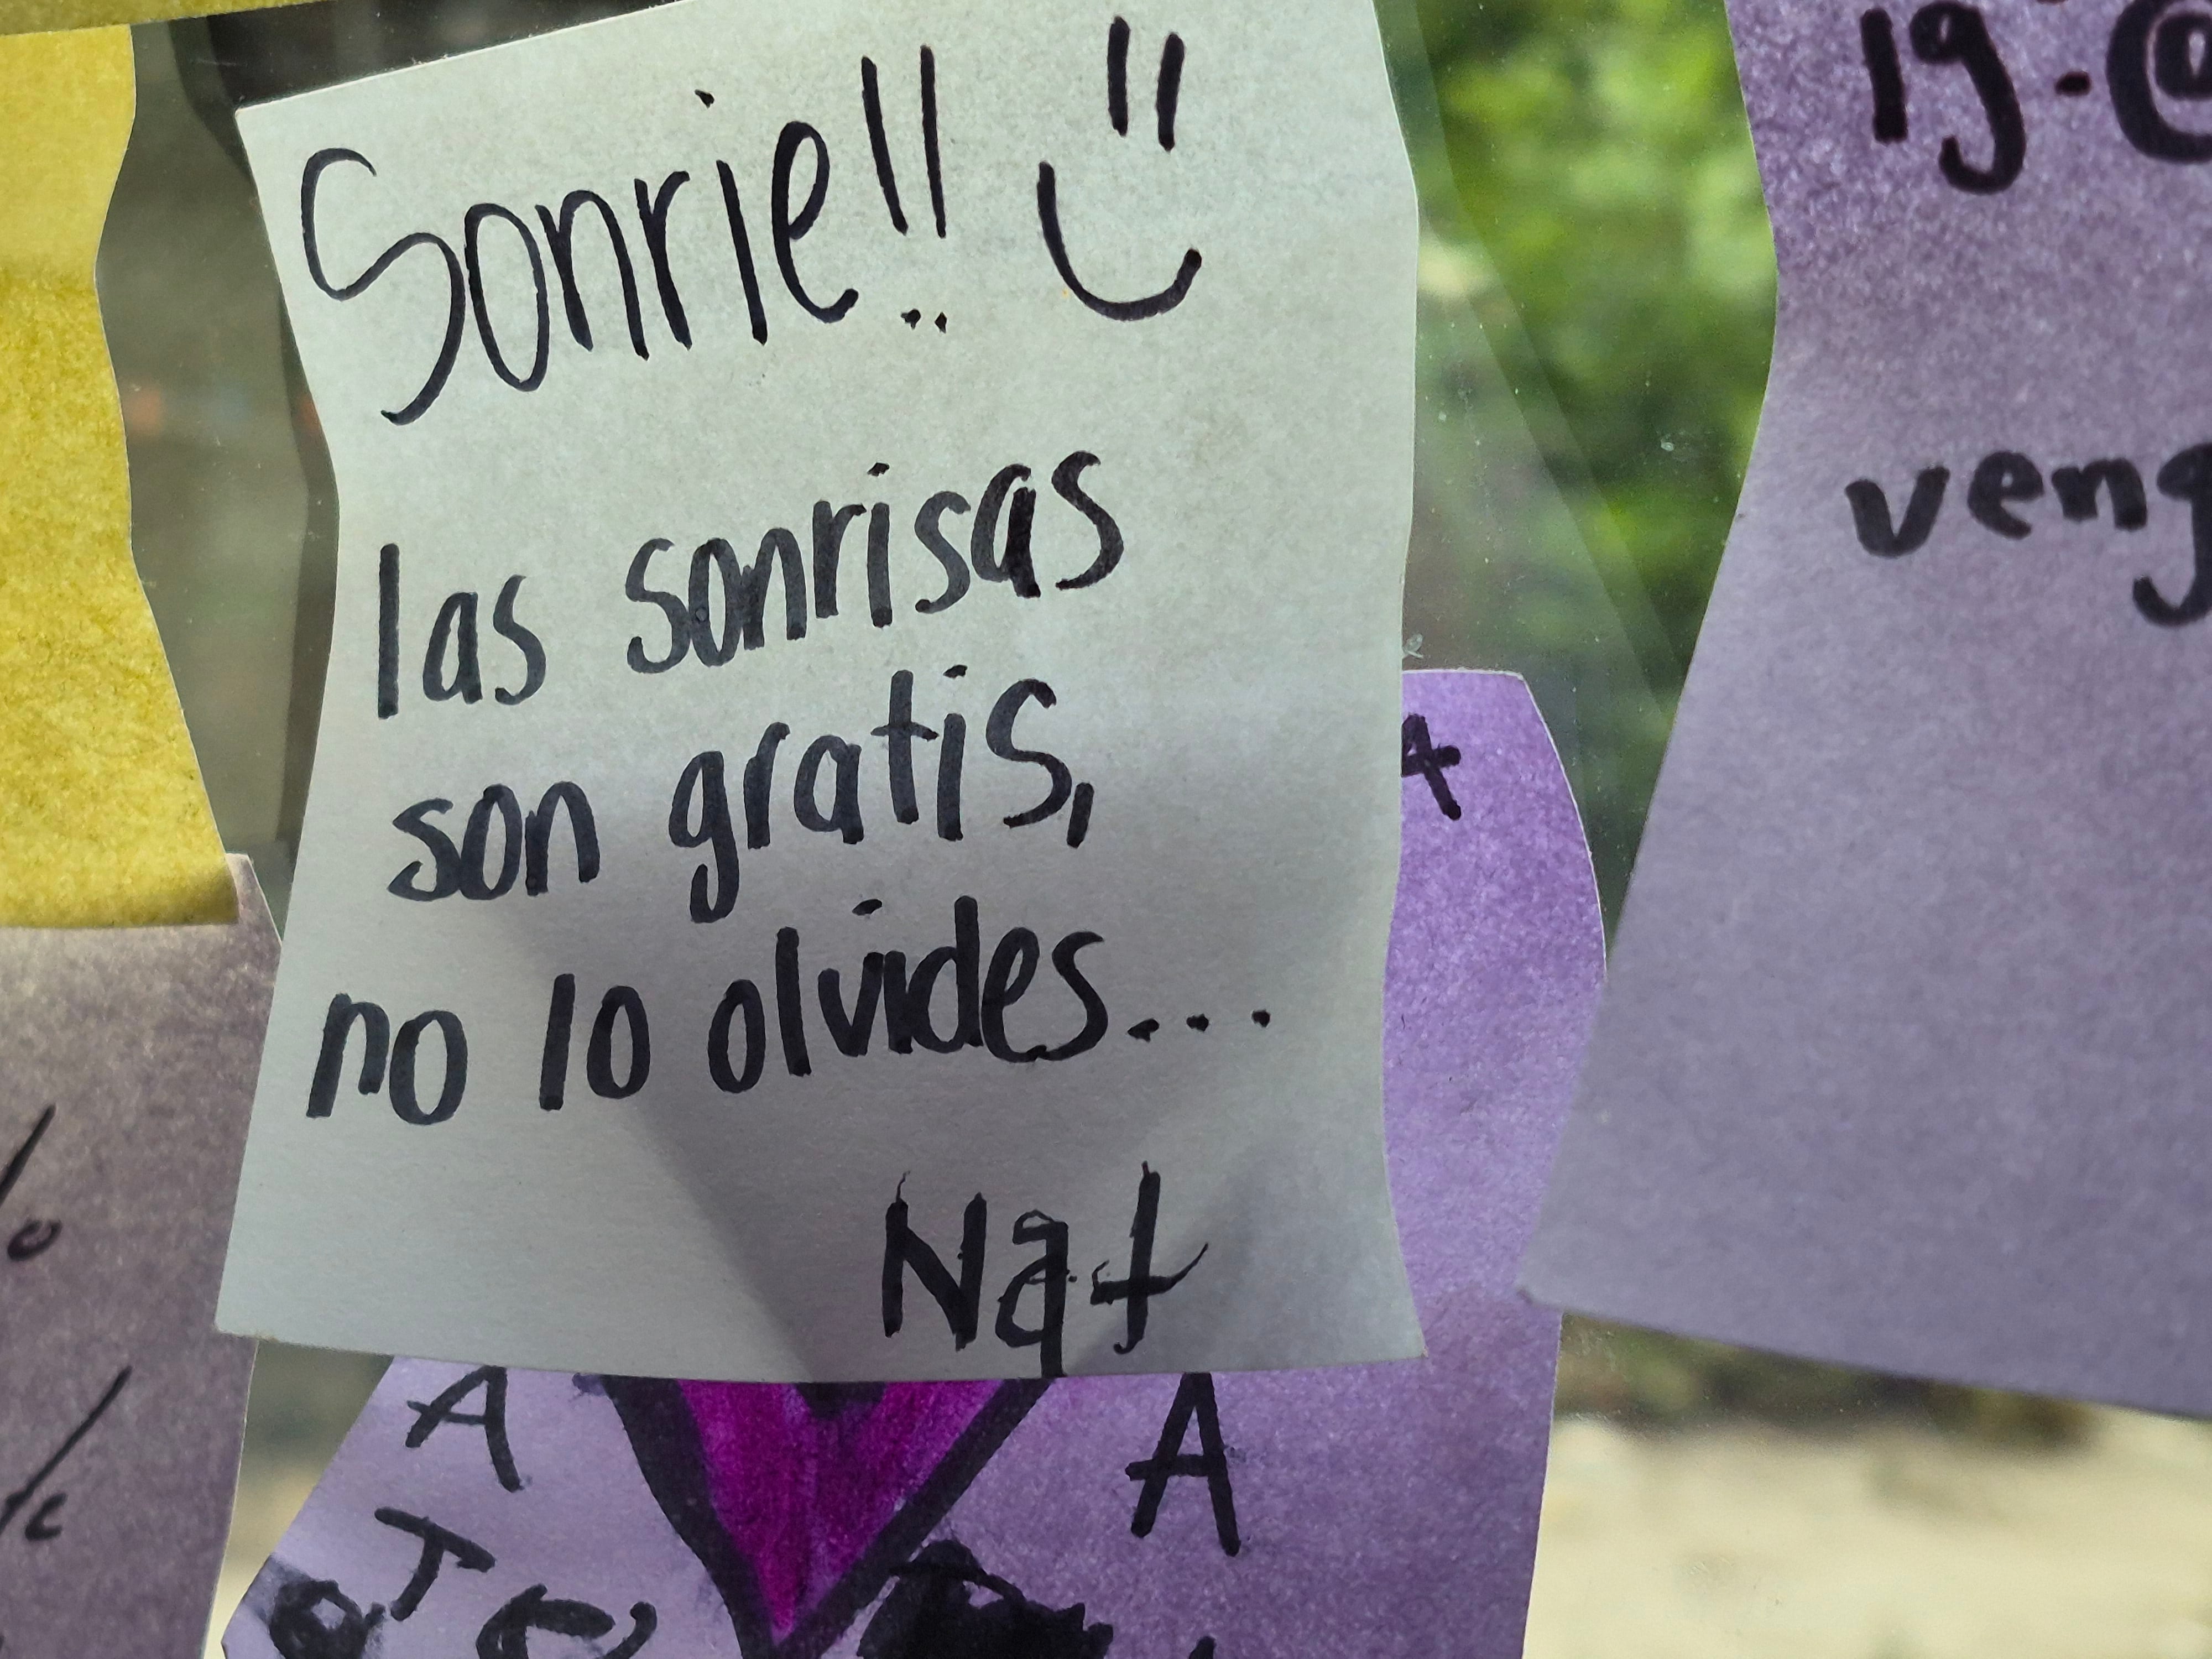 Sonrie!! :)
las sonrisas
son gratis,
no lo olvides...
Nat
ig:@
A
A
A